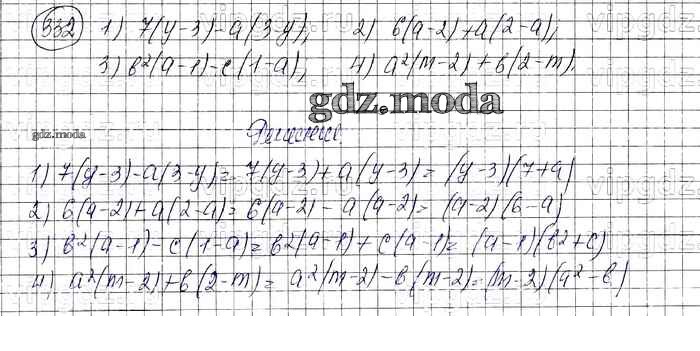 332 1) 7(y-3)-a(3-y); 2) 6(a-2)+a(2-a);
3) b²(a-1)-c(1-a); 4) a²(m-2)+b(2-m).
gdz.moda
gdz.moda
1) 7(y-3)-a(3-y)= 7(y-3)+a(y-3)= (y-3)(7+a)
2) 6(a-2)+a(2-a)= 6(a-2)-a(a-2)= (a-2)(6-a)
3) b²(a-1)-c(1-a)= b²(a-1)+c(a-1)= (a-1)(b²+c)
4) a²(m-2)+b(2-m)= a²(m-2)-b(m-2)= (m-2)(a²-b)